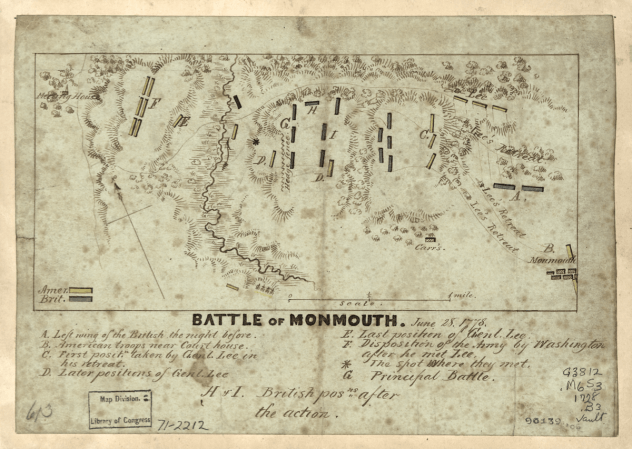 Meeting House
F
E
H
G
I
D
D
C
Lee
Lees Retreat
Lees Retreat
Lees Retreat
A
B.
Monmouth
Carrs.
Amer.
Brit.
0
Scale.
1 mile.
BATTLE OF MONMOUTH. June 28, 1778.
A. Left wing of the British the night before.
B. American troops near Court house.
C. First posit.n taken by Genl. Lee in
his retreat.
D. Later positions of Genl. Lee
E. Last position of Genl. Lee
F Disposition of the Army by Washington
after he met Lee.
* The spot where they met.
G Principal Battle.
H & I. British pos.ns after
the action.
Map Division.
Library of Congress
71-2212
G3812
.M6S3
1778
.B3
Vault
90239